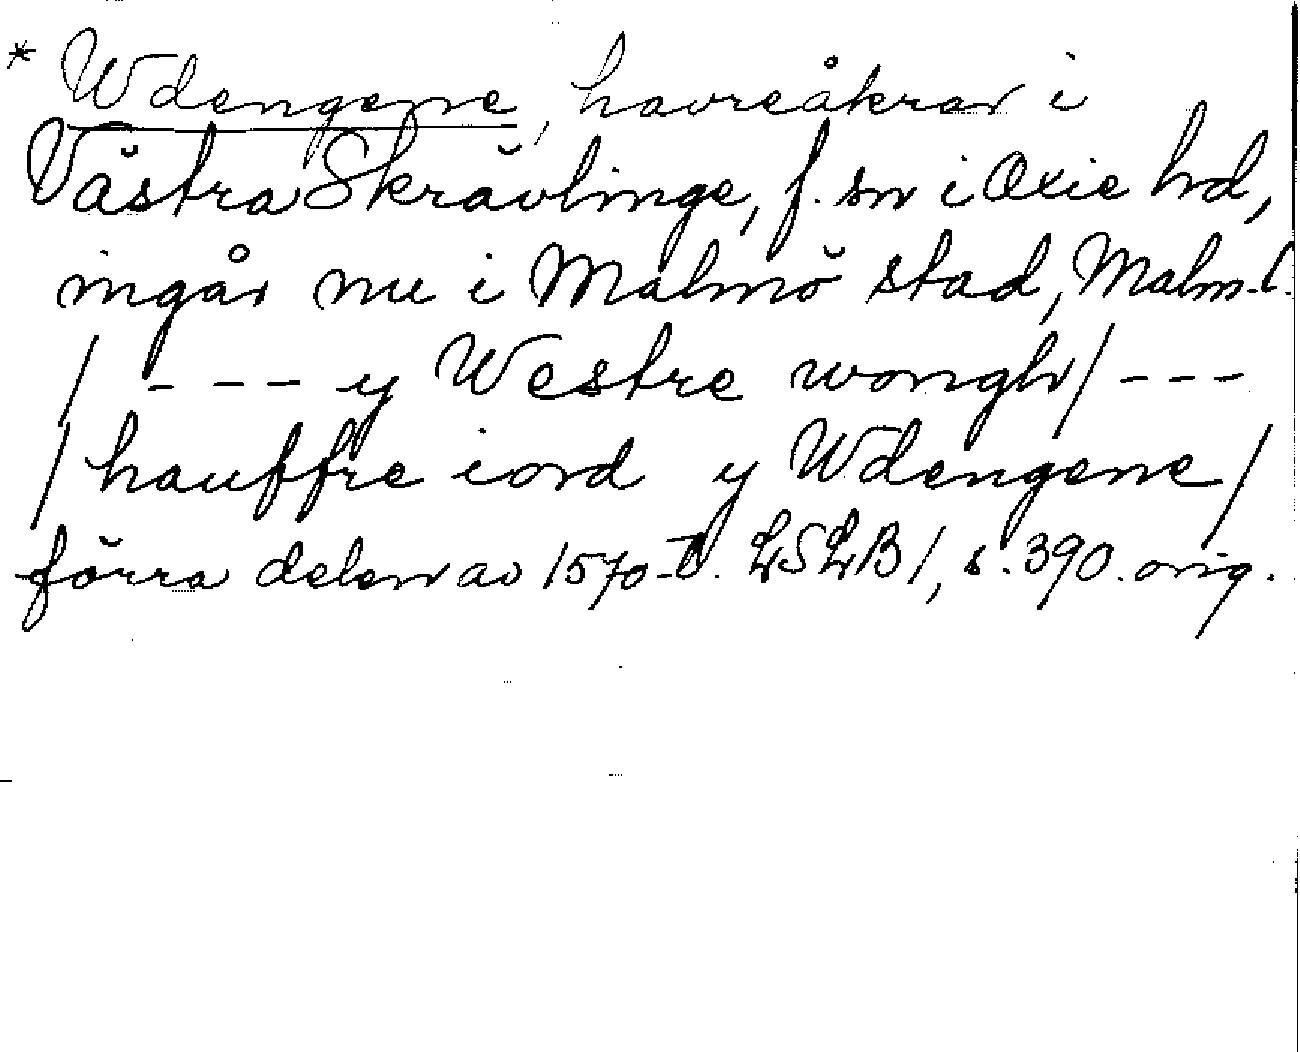 * Wdengene, havreåkrar i
Västra Skrävlinge, f. sn i Oxie hd,
ingår nu i Malmö stad, Malm. l.
/ - - - y Westre wongh / - - -
/ hauffre iord y Wdengene /
förra delen av 1570-t. LSLB 1, s. 390. orig.